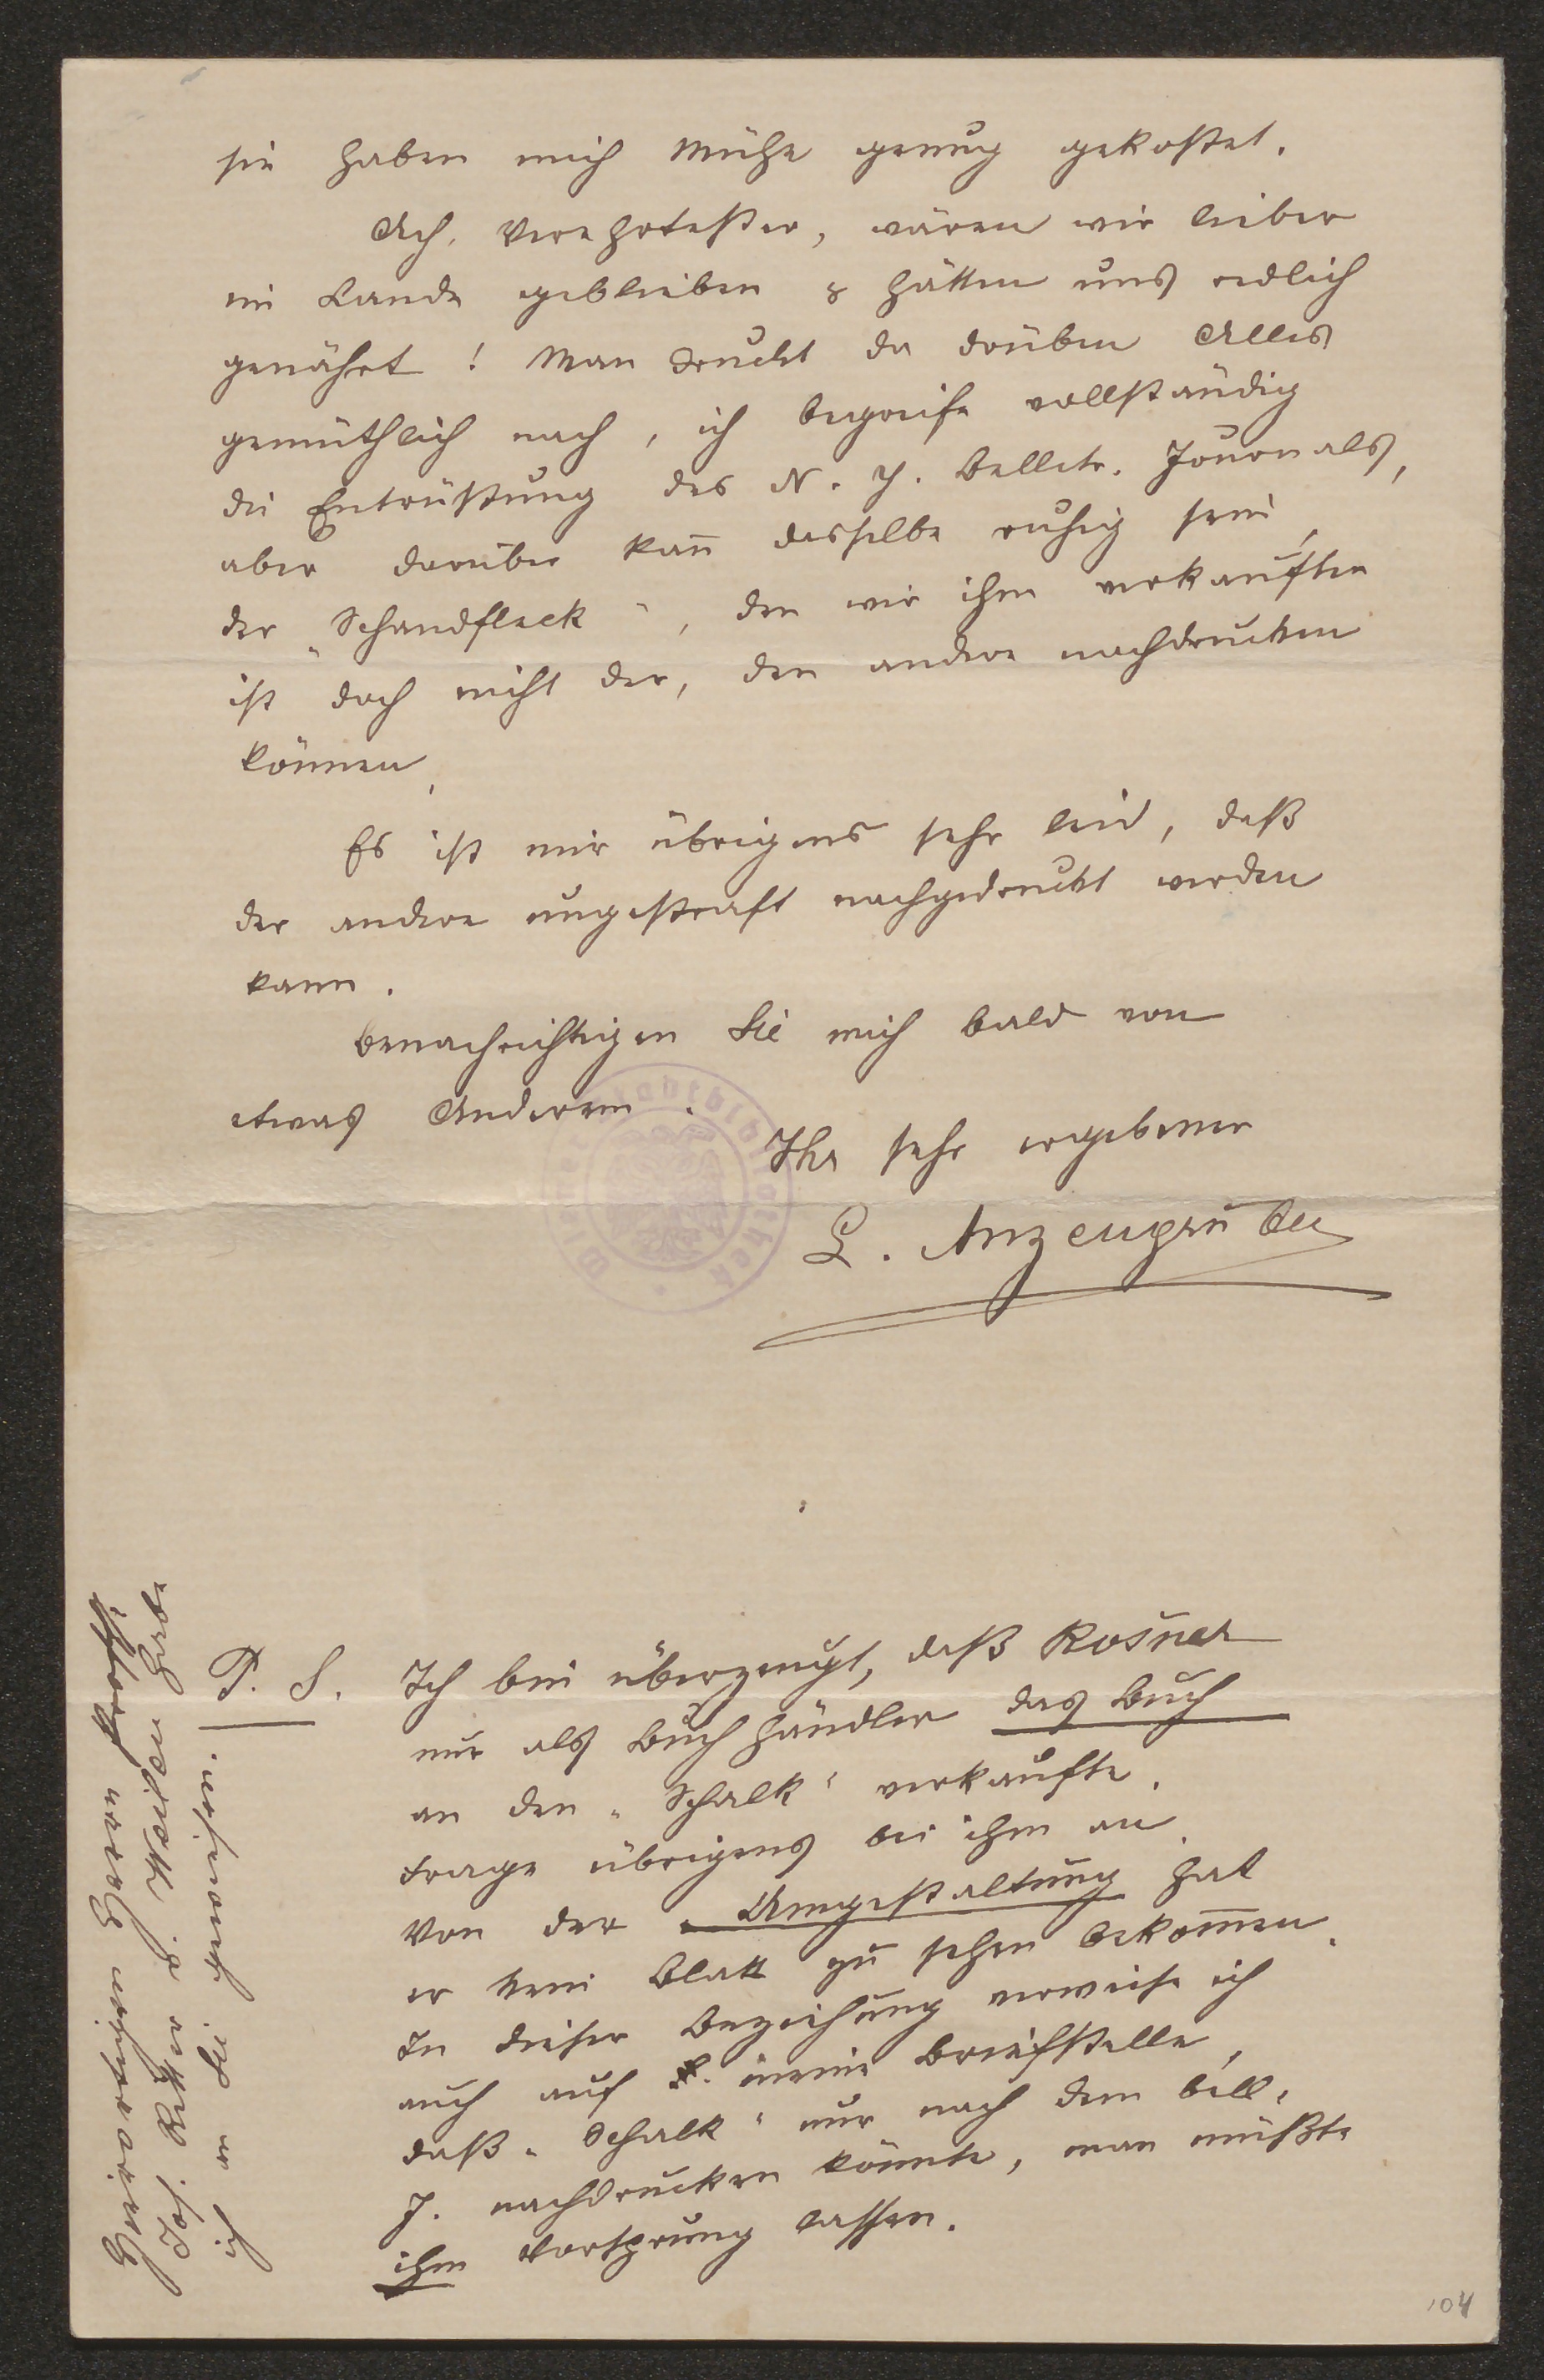 sie haben mich Mühe genug gekostet.
Ach, Verehrtester, wären wir lieber
im Lande geblieben & hätten uns redlich
genährt! Man druckt da drüben Alles
gemüthlich nach, ich begreife vollständig
die Entrüstung des N. Y. Belletr. Journals,
aber darüber kañ dasselbe ruhig sein,
der „Schandfleck“, den wir ihm verkauften
ist doch nicht der, den andere nachdrucken
können,
Es ist mir übrigens sehr leid, daß
der andere ungestraft nachgedruckt werden
kann.
Benachrichtigen Sie mich bald von
etwas Anderem.
Ihr sehr ergebener
L. Anzengruber
P. S. Ich bin überzeugt, daß Rosner
nur als Buchhändler das Buch
an den „Schalk“ verkaufte.
Frage übrigens bei ihm an.
Von der Umgestaltung hat
er kein Blatt zu sehen bekom̄en.
In dieser Beziehung verweise ich
auch auf meine Briefstelle,
daß „Schalk“ nur nach dem bell.
J. nachdrucken könnte, man müßte
ihm Vorsprung lassen.
Jos. Ritter v. Weilen habe
ich an Sie gewiesen.
Stadtbibliothek
104